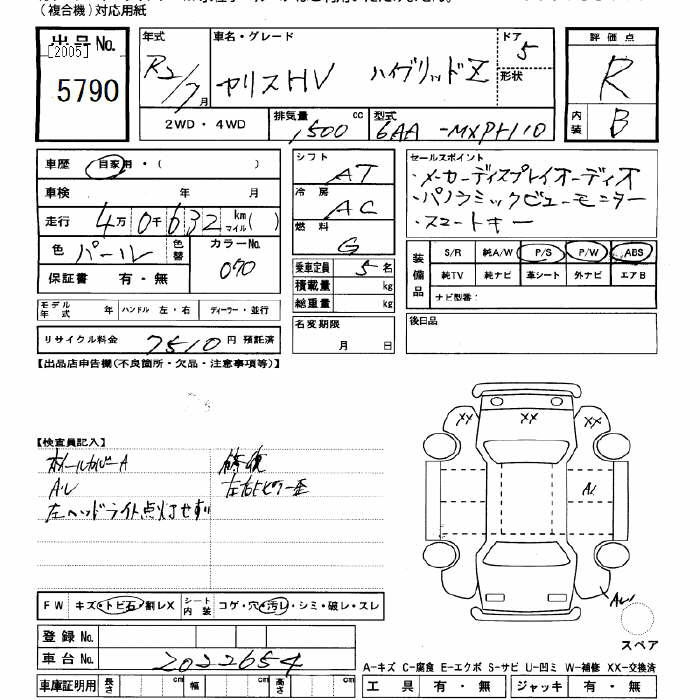 （複合機）対応用紙
出品No.
[2005]
5790
年式
R2/7月
車名・グレード
ヤリスHV ハイブリッドZ
ドア
5
形状
2WD・4WD
排気量
1500 cc
型式
6AA-MXPH10
評価点
R
内装
B
車歴
自家用・（ ）
車検 年 月
走行 4万0千632 km マイル( )
色 パール
色替
カラーNo.
070
保証書 有・無
モデル年式 年
ハンドル 左・右
ディーラー・並行
リサイクル料金 7510円 預託済
シフト
AT
冷房
AC
燃料
G
乗車定員 5名
積載量 kg
総重量 kg
名変期限
月 日
セールスポイント
・メーカーディスプレイオーディオ
・パノラミックビューモニター
・スマートキー
装備品
S/R 純A/W P/S P/W ABS
純TV 純ナビ 革シート 外ナビ エアB
ナビ型番：
後日品
【出品店申告欄(不良箇所・欠品・注意事項等)】
【検査員記入】
ホイールカバーA
A・U
左ヘッドライト点灯せず
修復
XX
XX XX
FW キズ・トビ石・割レX
シート内装 コゲ・穴・汚レ・シミ・破レ・スレ
登録No.
車台No. 2022654
車庫証明用 長さ cm 幅 cm 高さ cm
スペア
A-キズ C-腐食 E-エクボ S-サビ U-凹ミ W-補修 XX-交換済
工具 有・無 ジャッキ 有・無